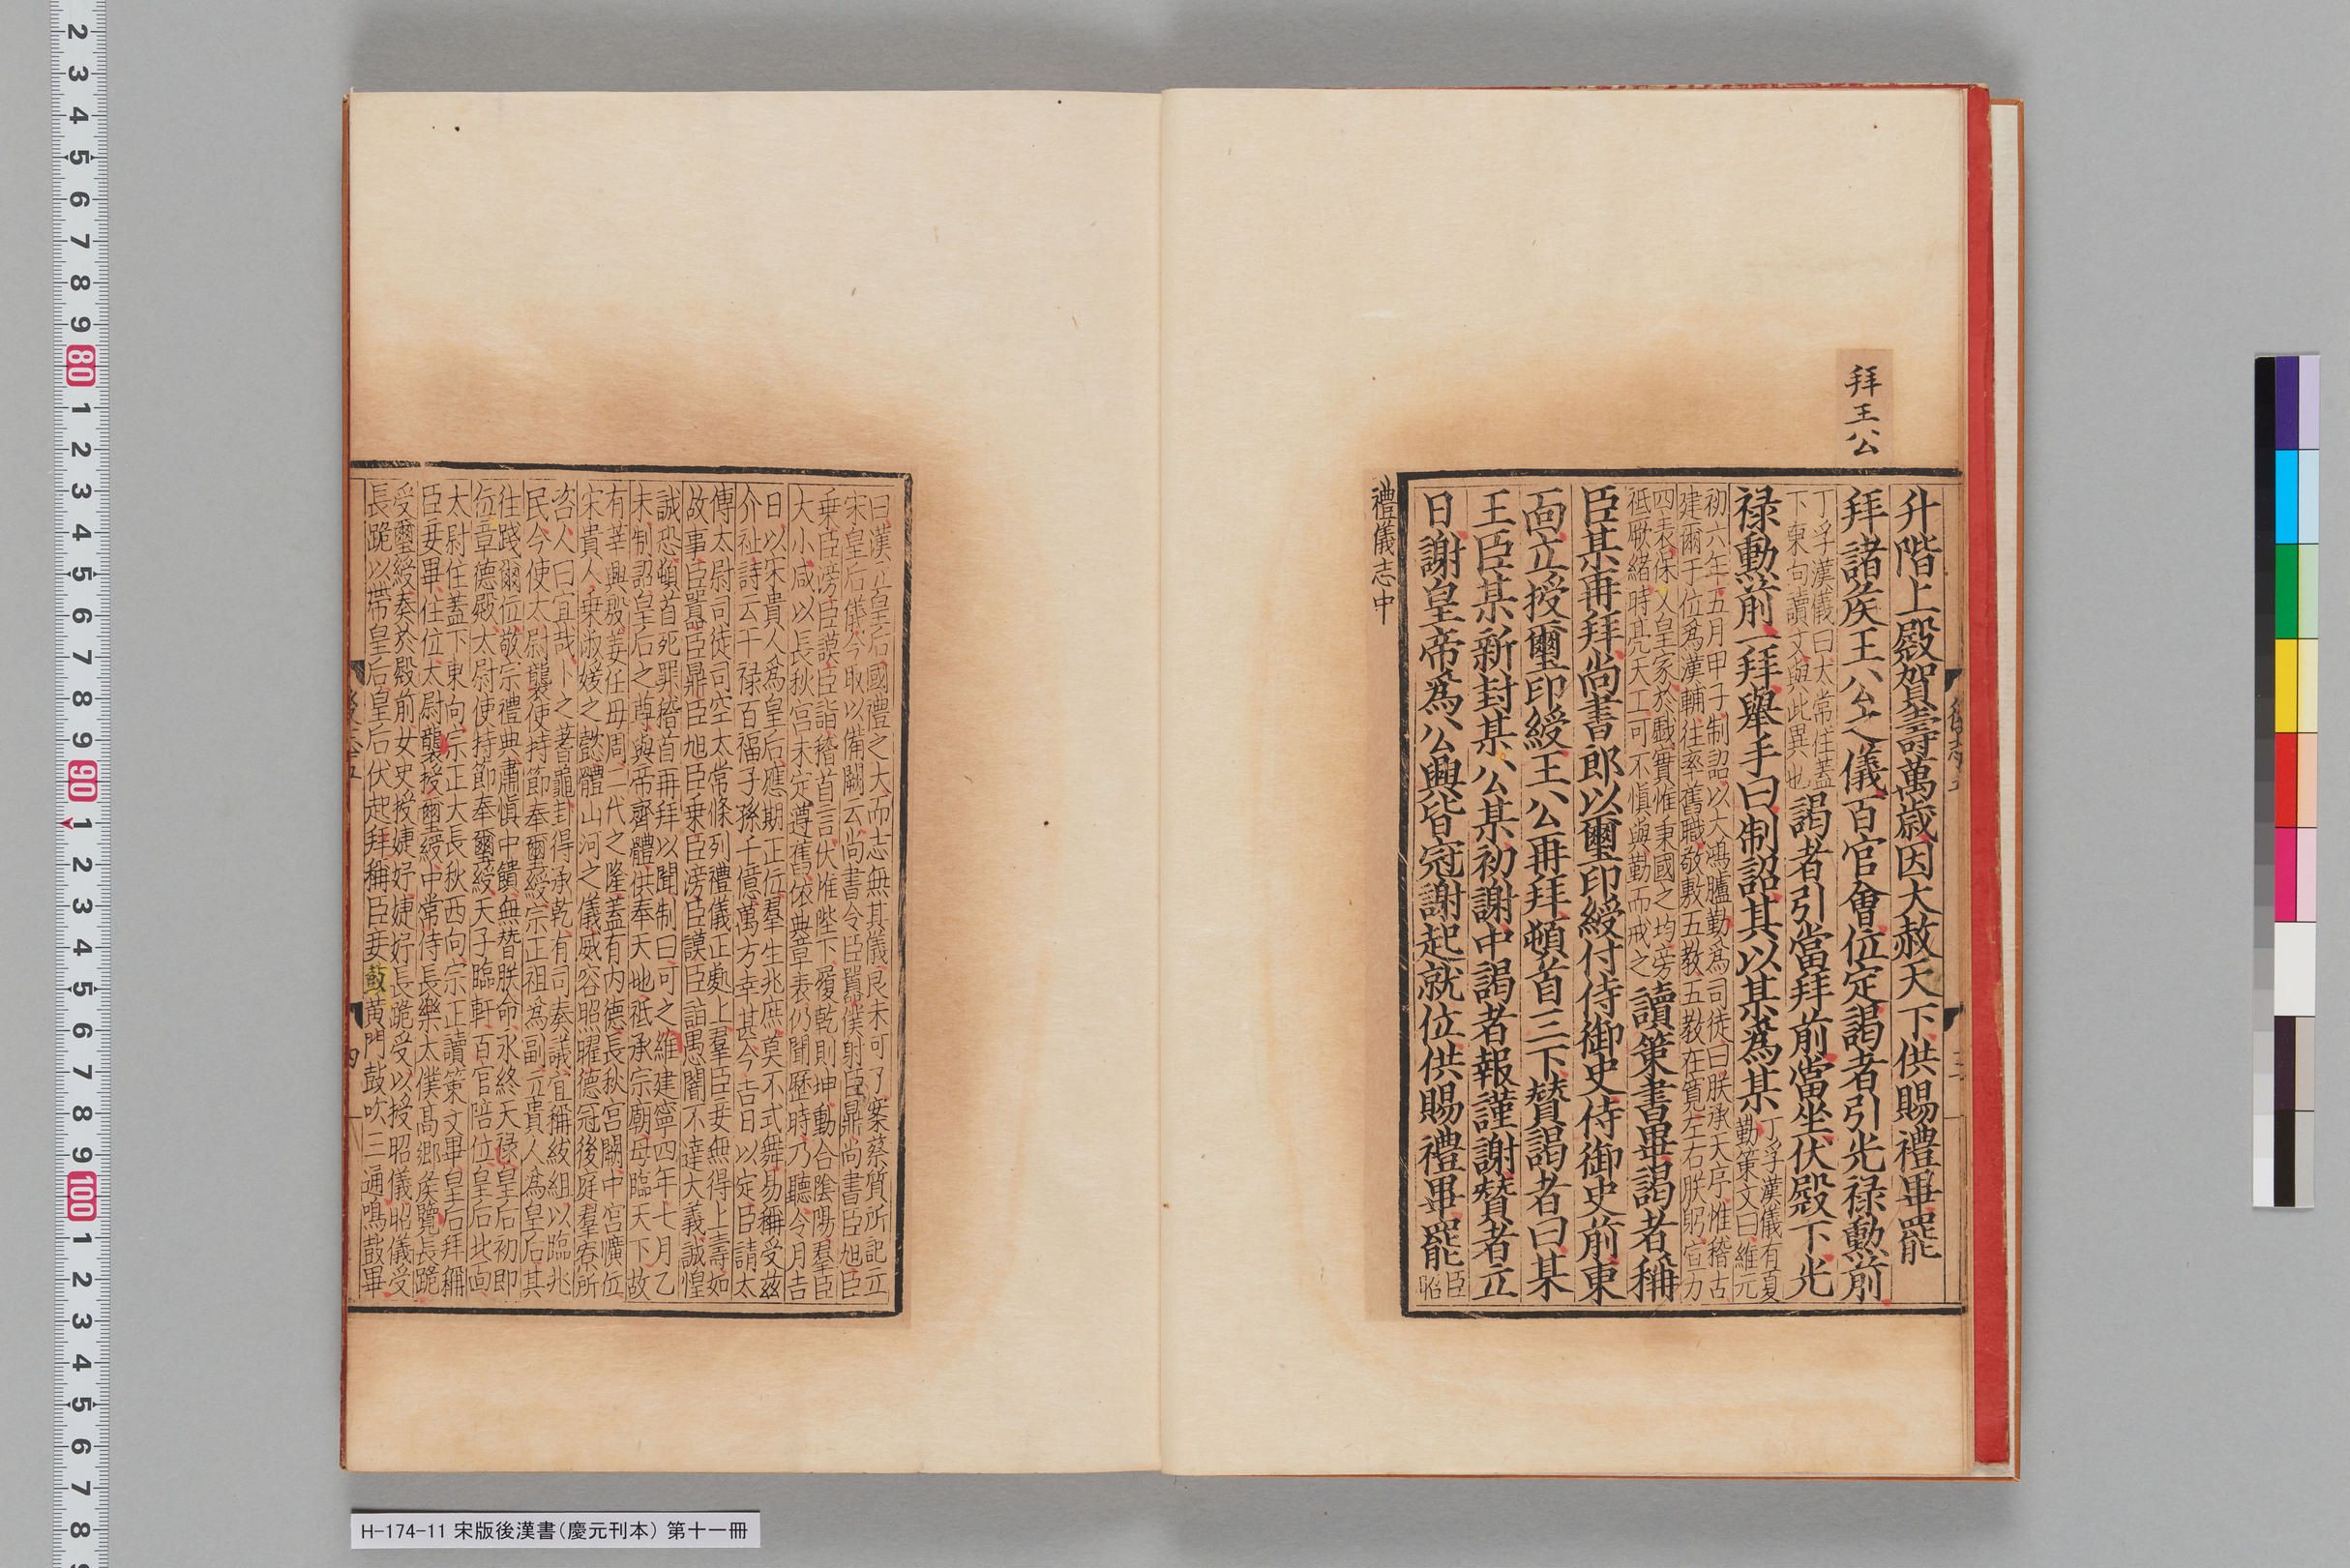 拜王公
升階上殿賀壽萬歲因大赦天下供賜禮畢罷
拜諸侯王公之儀百官會位定謁者引光祿勳前
丁孚漢儀曰太常住蓋
下東向讀文與此異也
謁者引當拜前當坐伏殿下光
祿勳前一拜舉手曰制詔其以某爲某
丁孚漢儀有夏
勤策文曰維元
初六年五月甲子制詔以大鴻臚勤爲司徒曰朕承天序惟稽古
建爾于位爲漢輔往率舊職敬敷五教五教在寬左右朕躬宣力
四表保乂皇家於戲實惟秉國之均旁
祗厥緒時亮天工可不慎與勤而戒之
讀策書畢謁者稱
臣某再拜尚書郎以璽印綬付侍御史侍御史前東
面立授璽印綬王公再拜頓首三下贊謁者曰某
王臣某新封某公某初謝中謁者報謹謝贊者立
曰謝皇帝爲公興皆冠謝起就位供賜禮畢罷
臣
昭
禮儀志中
曰漢立皇后國禮之大而志無其儀良未可了案蔡質所記立
宋皇后儀今取以備闕云尚書令臣嚚僕射臣鼎尚書臣旭臣
乗臣滂臣謨臣詣稽首言伏惟陛下履乾則坤動合陰陽羣臣
大小咸以長秋宮未定遵舊依典章表仍聞歷時乃聽令月吉
日以宋貴人爲皇后應期正位羣生兆庶莫不式舞易稱受茲
介祉詩云干祿百福子孫千億萬方幸甚今吉日以定臣請太
傅太尉司徒司空太常條列禮儀正處上羣臣妾無得上壽如
故事臣嚚臣鼎臣旭臣乗臣滂臣謨臣詣愚闇不達大義誠惶
誠恐頓首死罪稽首再拜以聞制曰可之維建寧四年七月乙
未制詔皇后之尊與帝齊體供奉天地祗承宗廟母臨天下故
有莘興殷姜任毋周二代之隆蓋有内德長秋宮闕中宮曠位
宋貴人乗淑媛之懿體山河之儀威容昭曜德冠後庭羣寮所
咨人曰宜哉卜之蓍龜卦得承乾有司奏議宜稱紱組以臨兆
民今使太尉襲使持節奉璽綬宗正祖爲副立貴人爲皇后其
往踐爾位敬宗禮典肅慎中饋無替朕命永終天祿皇后初即
位章德殿太尉使持節奉璽綬天子臨軒百官陪位皇后北面
太尉住蓋下東向宗正大長秋西向宗正讀策文畢皇后拜稱
臣妾畢住位太尉襲授璽綬中常侍長樂太僕高鄉侯覽長跪
受璽綬奏於殿前女史授婕妤婕妤長跪受以授昭儀昭儀受
長跪以帶皇后皇后伏起拜稱臣妾鼓黃門鼓吹三通鳴鼓畢
四
H-174-11 宋版後漢書（慶元刊本） 第十一冊